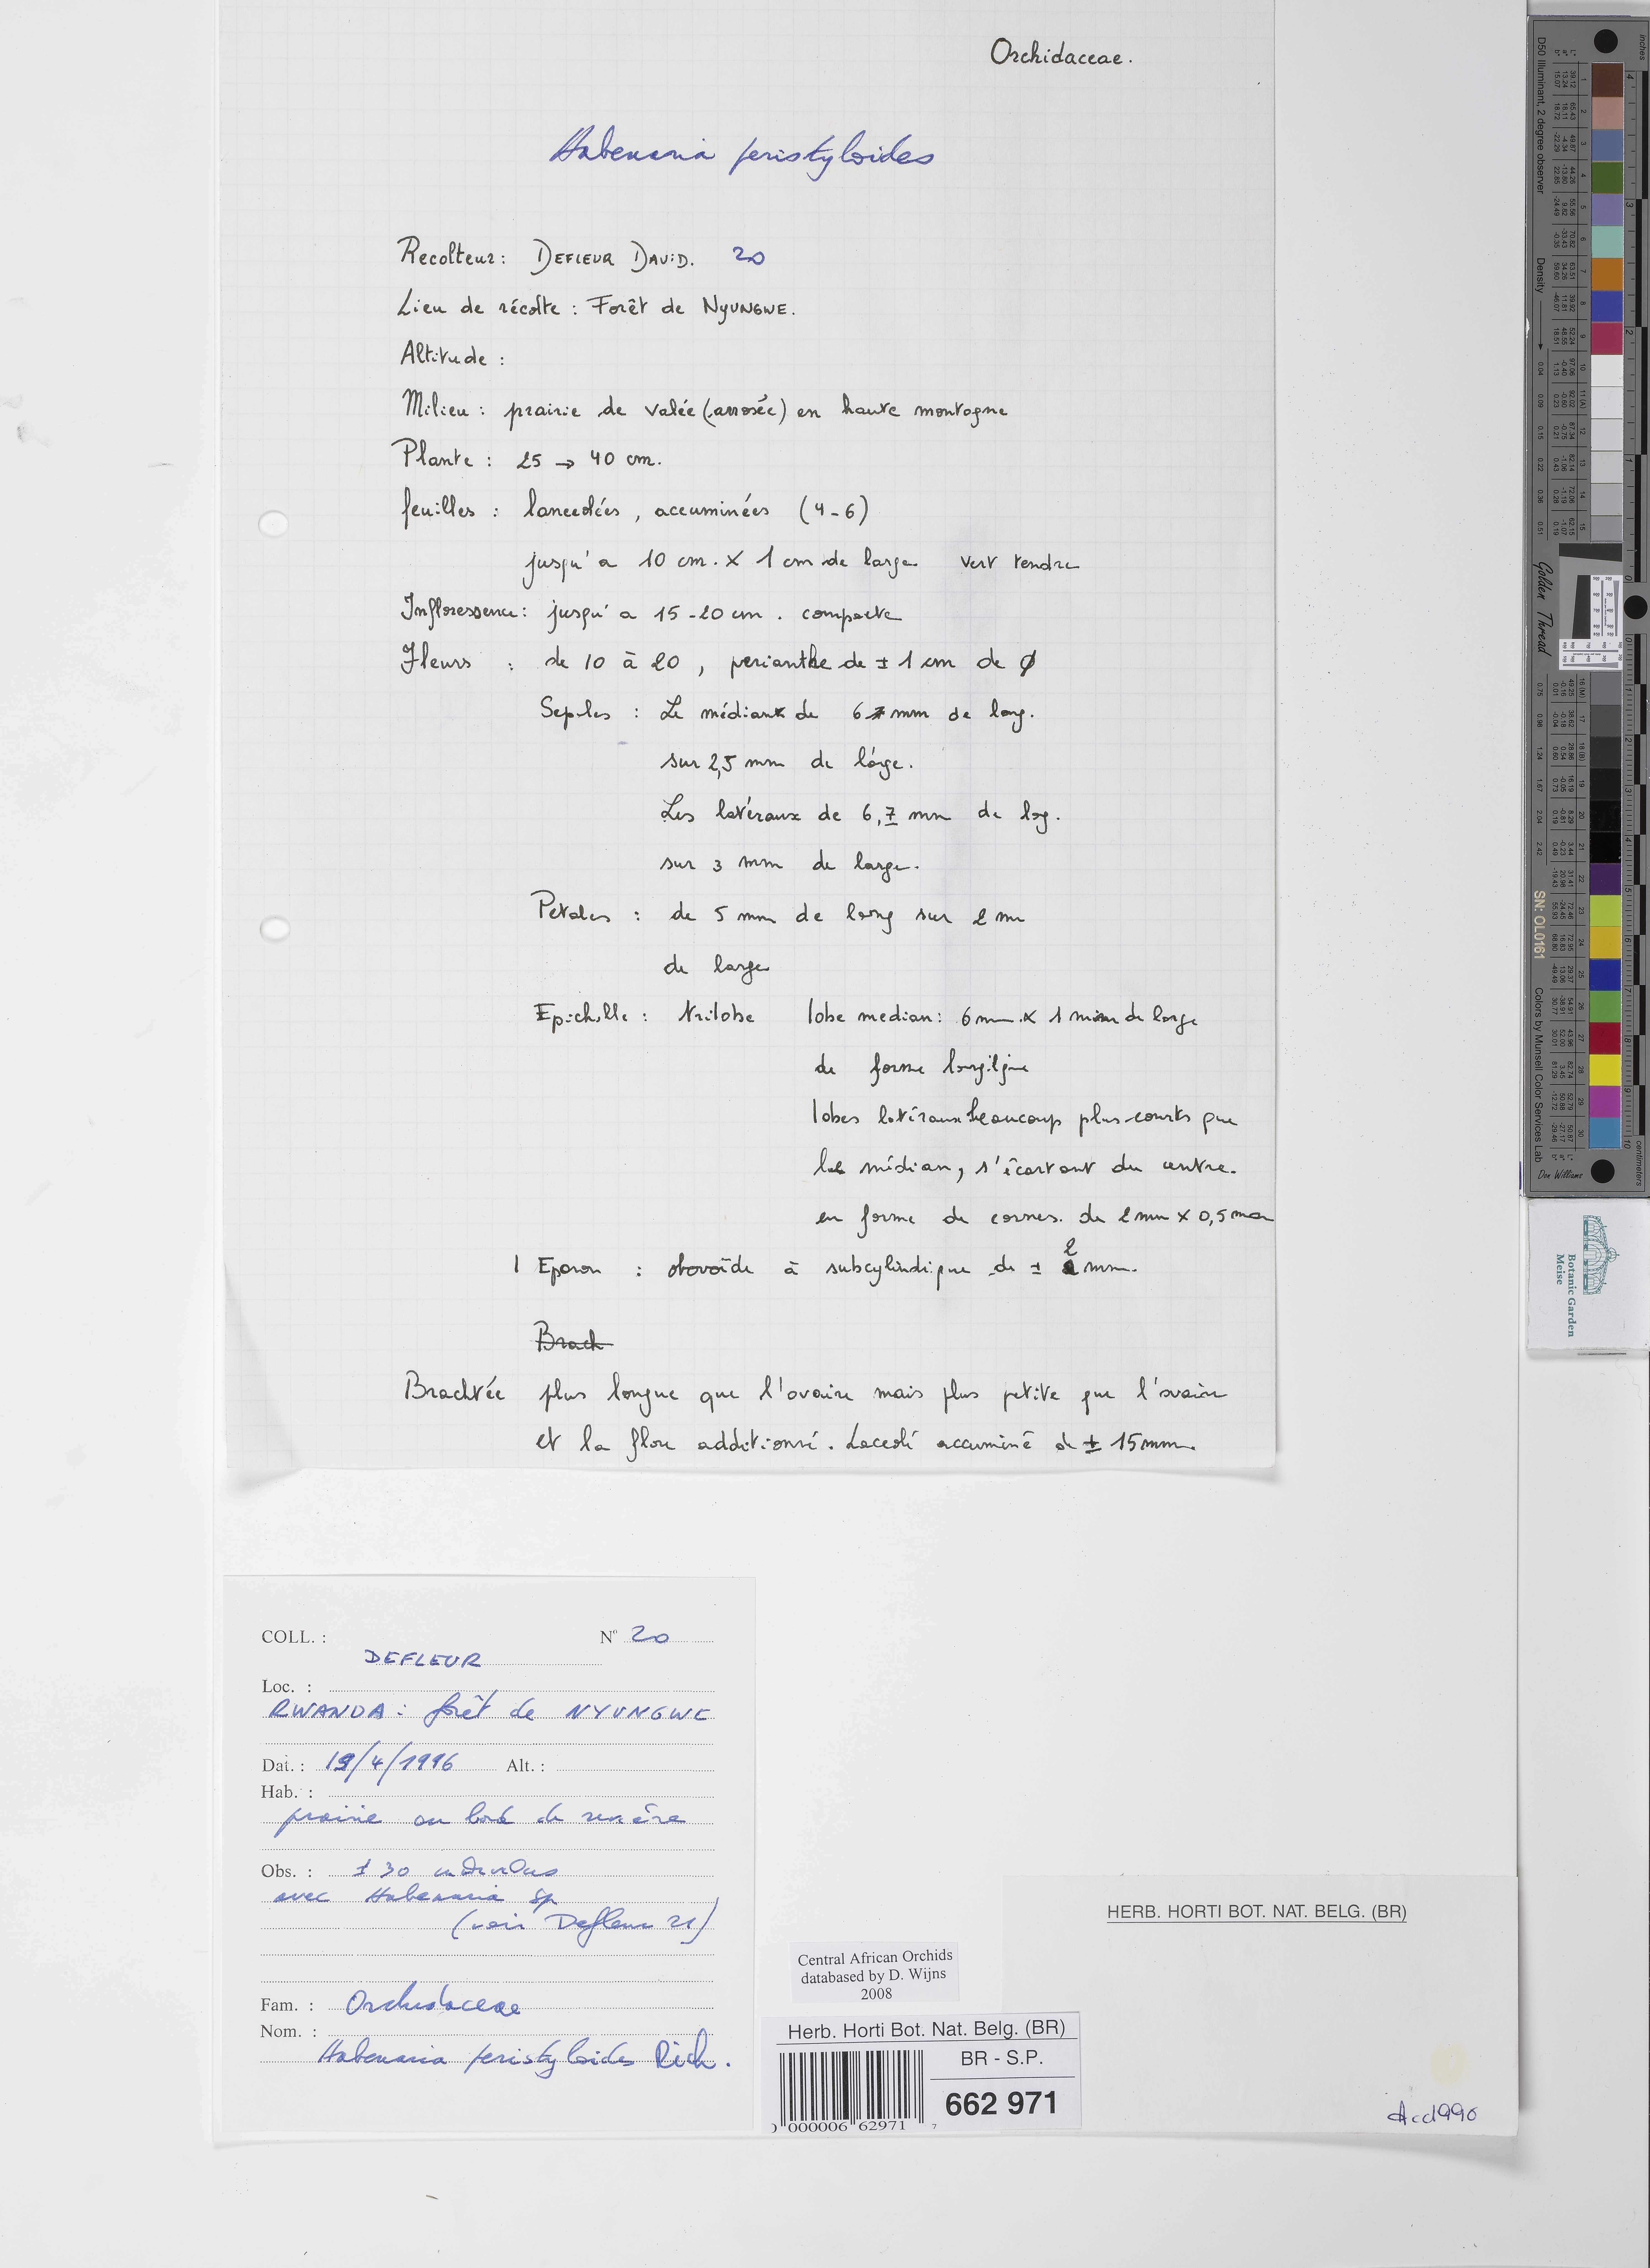 Orchidaceae.
Habenaria peristyloides
Recolteur : DEFLEUR DAVID. 20
Lieu de récolte : Forêt de NYUNGWE.
Altitude :
Milieu : prairie de valée (arrosée) en haute montagne
Plante : 25 → 40 cm.
feuilles : lanceolées, accuminées (4-6)
jusqu'a 10 cm. x 1 cm de large vert tendre
Infloressence : jusqu'a 15-20 cm. compacte
Fleurs : de 10 à 20, perianthe de ± 1 cm de ϕ
Sepales : Le médian de 6 mm de long.
sur 2,5 mm de large.
Les latéraux de 6,7 mm de long.
sur 3 mm de large.
Petales : de 5 mm de long sur 2 mm
de large
Epichille : trilobe lobe median : 6 mm x 1 mm de large
de forme longiligne
lobes latéraux beaucoup plus courts que
le médian, s'écartant du centre.
en forme de cornes. de 2 mm x 0,5 mm
1 Eperon : obovoïde à subcylindique de ± 2 mm.
Brach
Brachtée plus longue que l'ovaire mais plus petite que l'ovaire
et la fleur additionné. Laceolé accuminé de ± 15 mm.
COLL. : N° 20
DEFLEUR
Loc. :
RWANDA : forêt de NYUNGWE
Dat. : 19/4/1996 Alt. :
Hab. :
prairie au bord de rivière
Obs. : ± 30 individus
avec Habenaria sp
(voir Defleur 21)
Fam. : Orchidaceae
Nom. :
Habenaria peristyloides Rich.
HERB. HORTI BOT. NAT. BELG. (BR)
Central African Orchids
databased by D. Wijns
2008
Herb. Horti Bot. Nat. Belg. (BR)
BR - S.P.
662 971
0 000006 62971 7
Acd1996
D50 Illuminant, 2 degree observer
Density
Golden Thread
SN: OL0161
Colors by Munsell Color Services Lab
Don Williams
inches
centimeters
Botanic Garden
Meise